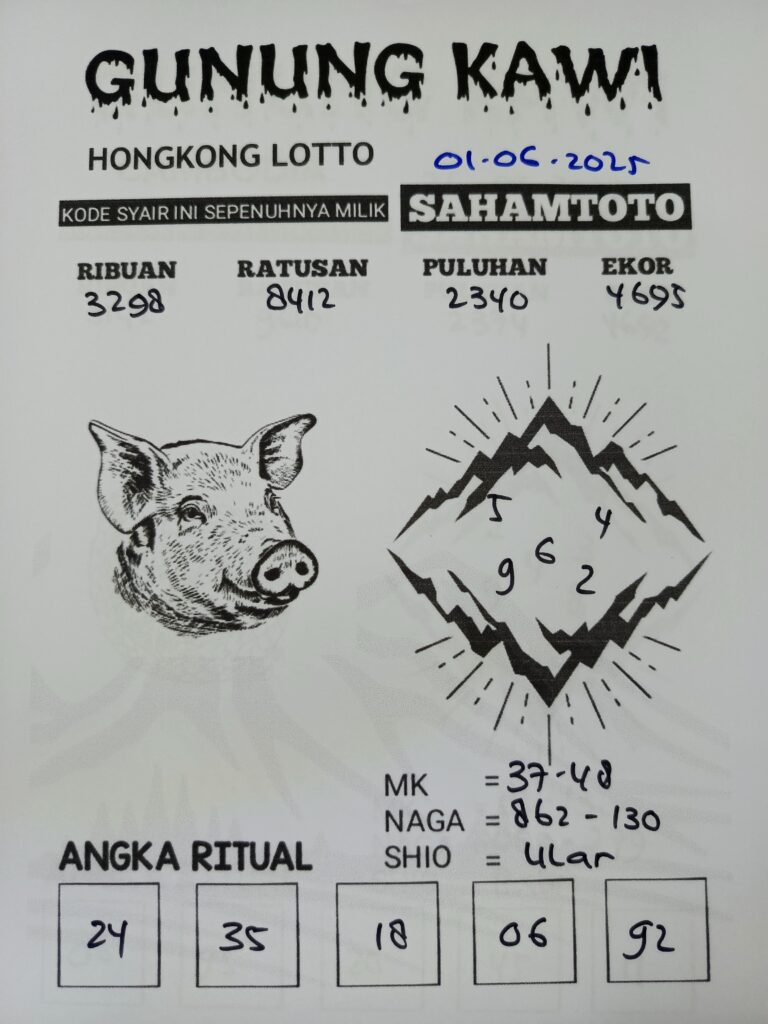 GUNUNG KAWI
HONGKONG LOTTO 01-06-2025
KODE SYAIR INI SEPENUHNYA MILIK SAHAMTOTO
RIBUAN RATUSAN PULUHAN EKOR
3298 8412 2340 4695
5 4
6
9 2
MK = 37-48
NAGA = 862 - 130
SHIO = ULar
ANGKA RITUAL
24 35 18 06 92